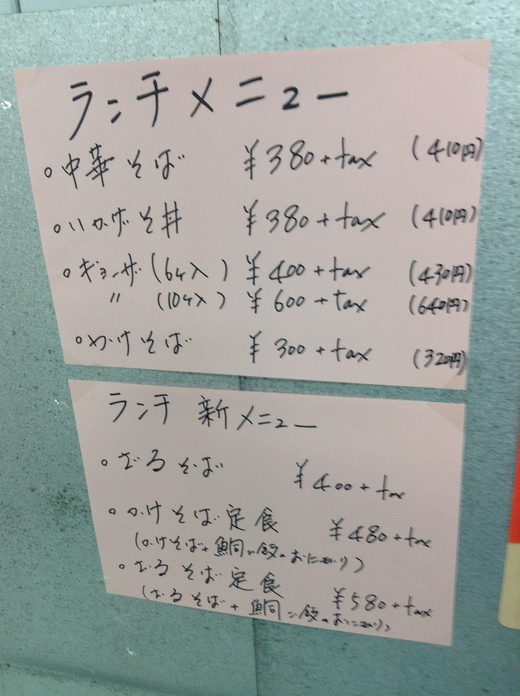 ランチメニュー
○中華そば ¥380+tax (410円)
○いかめそ丼 ¥380+tax (410円)
○ギョーザ(6ヶ入) ¥400+tax (430円)
〃 (10ヶ入) ¥600+tax (640円)
○かけそば ¥300+tax (320円)
ランチ 新メニュー
○ざるそば ¥400+tax
○かけそば定食 ¥480+tax
(かけそば+鯛めし飯のおにぎり)
○ざるそば定食 ¥580+tax
(ざるそば+鯛めし飯のおにぎり)